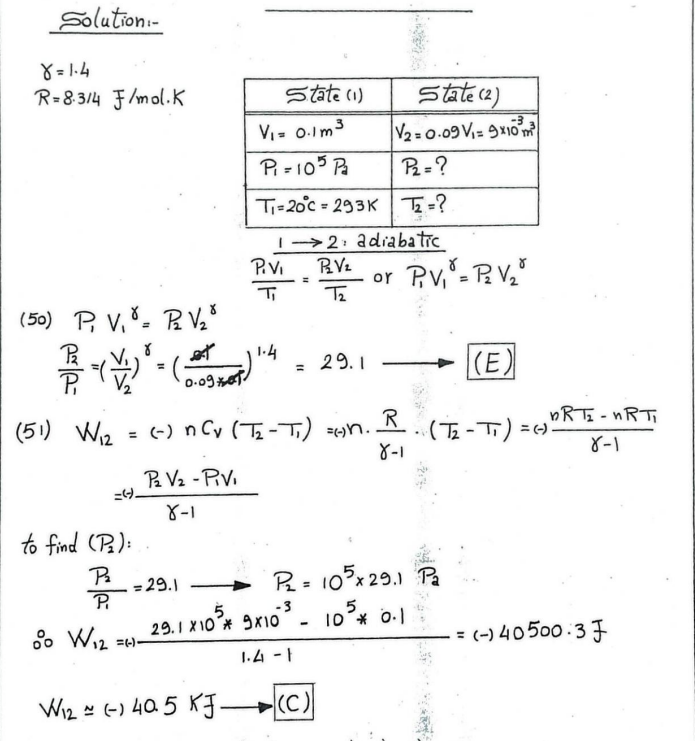 Solution:-
γ = 1.4
R = 8.314 J/mol.K
State (1) State (2)
V₁ = 0.1 m³ V₂ = 0.09 V₁ = 9×10⁻³ m³
P₁ = 10⁵ Pa P₂ = ?
T₁ = 20°C = 293K T₂ = ?
1 → 2 : adiabatic
P₁V₁/T₁ = P₂V₂/T₂ or P₁V₁^γ = P₂V₂^γ
(50) P₁ V₁^γ = P₂ V₂^γ
P₂/P₁ = (V₁/V₂)^γ = (0.1/0.09*0.1)^1.4 = 29.1 → (E)
(51) W₁₂ = (-) n Cv (T₂ - T₁) = (-) n . R/γ-1 . (T₂ - T₁) = (-) nRT₂ - nRT₁/γ-1
= (-) P₂V₂ - P₁V₁/γ-1
to find (P₂):
P₂/P₁ = 29.1 → P₂ = 10⁵ x 29.1 Pa
∴ W₁₂ = (-) 29.1 x 10⁵ * 9x10⁻³ - 10⁵ * 0.1/1.4 - 1 = (-) 40500.3 J
W₁₂ ≃ (-) 40.5 KJ → (C)